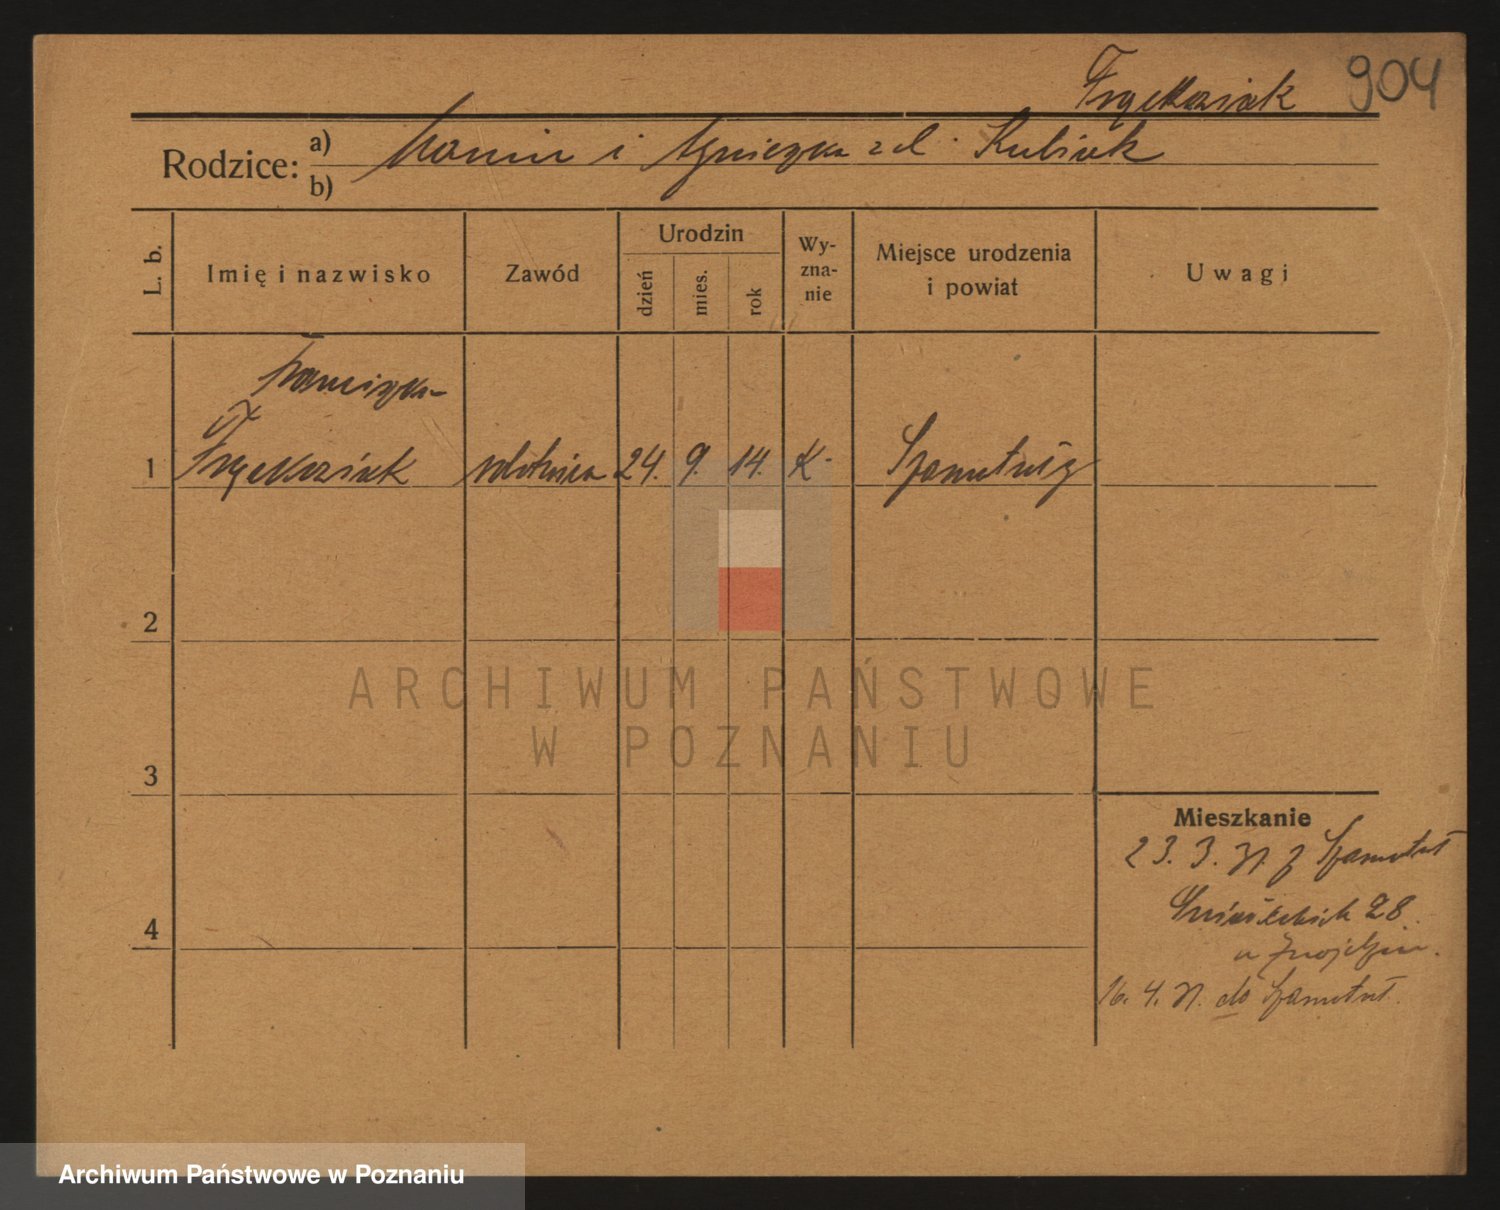 904
Rodzice:
a) Marcin i Agnieszka z d. Kubiak
b)
L. b.
Imię i nazwisko
Zawód
Urodzin
dzień
mies.
rok
Wy-
zna-
nie
Miejsce urodzenia
i powiat
Uwagi
Franciszka
1 robotnica 24. 9. 14. K. Szamotuły
2
3
4
ARCHIWUM PAŃSTWOWE
W POZNANIU
Mieszkanie
23. 3. 31. z Szamotuł
Śniadeckich 28
u
16. 4. 31. do Szamotuł.
Archiwum Państwowe w Poznaniu